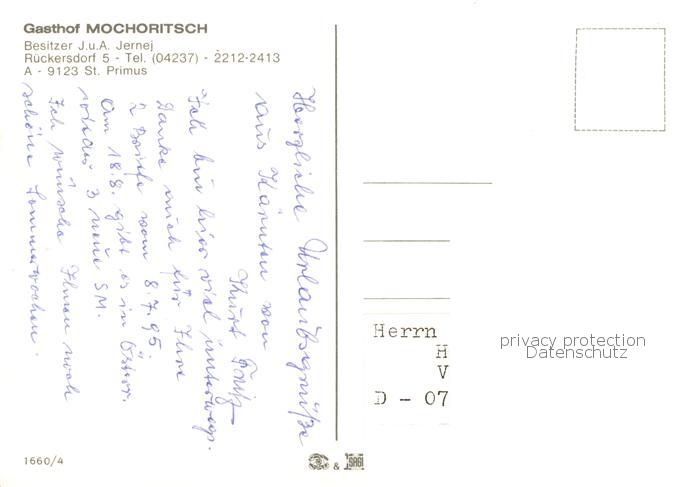 Gasthof MOCHORITSCH
Besitzer J.u.A. Jernej
Rückersdorf 5 - Tel. (04237) - 2212-2413
A - 9123 St. Primus
Herzliche Urlaubsgrüße
aus Kärnten von
Fritz
Ich bin hier viel unterwegs.
Danke auch für Ihre
2 Briefe vom 8.7.95.
Am 18.8. gibt es in Österr.
wieder 3 neue SM.
Ich wünsche Ihnen noch
schöne Sommerwochen.
Herrn
H
V
D - 07
privacy protection
Datenschutz
1660/4
&